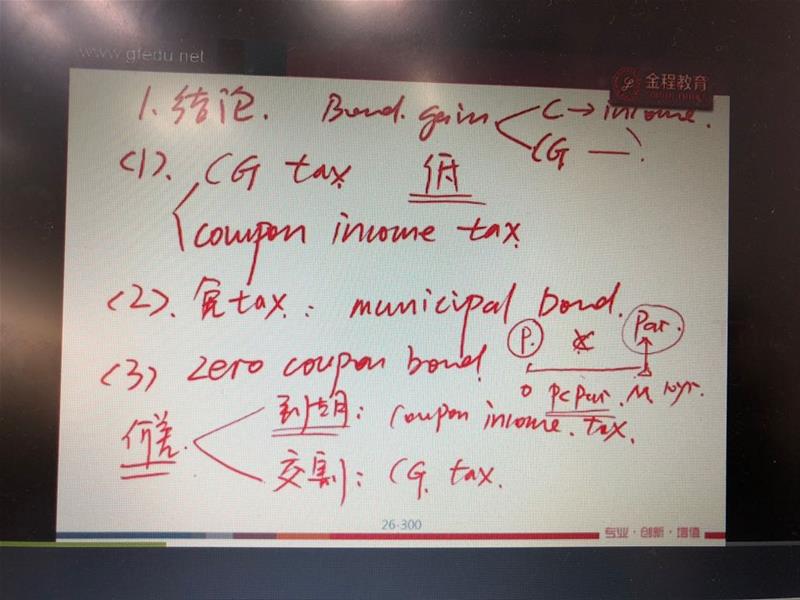 www.gfedu.net
金程教育
1. 结论. Bond. gain C → income.
CG —
(1). CG tax 低
coupon income tax
(2). 免tax: municipal bond.
(3) zero coupon bond P. Par.
0 P<Par. M 10yr.
价差. 到期: coupon income. tax.
交割: CG. tax.
26-300
专业·创新·增值